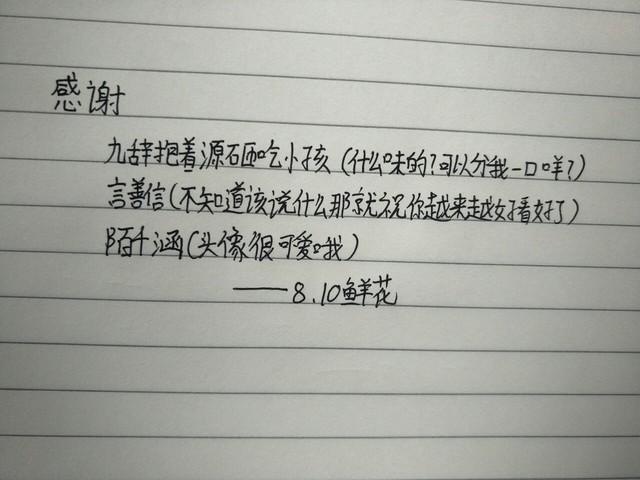 感谢
九辞抱着源石砸吃小孩（什么味的？可以分我一口咩？）
言善信（不知道该说什么那就祝你越来越好看好了）
陌千涵（头像很可爱哦）
——8.10鲜花